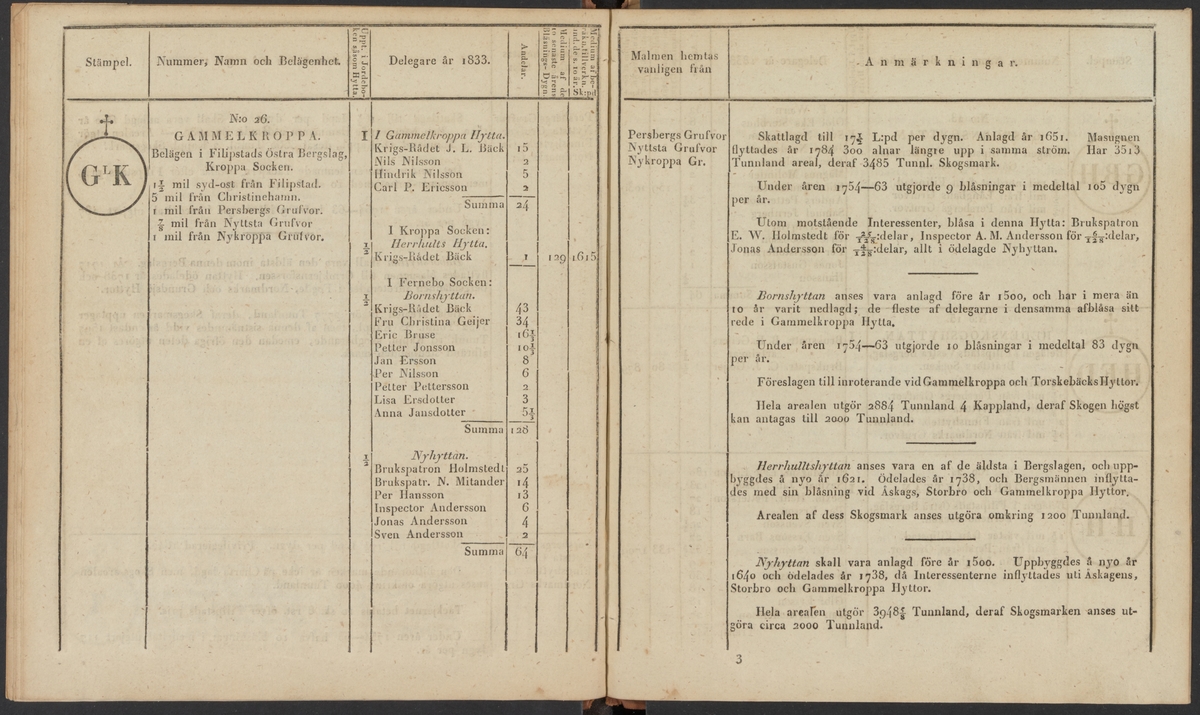 Stämpel.
Nummer, Namn och Belägenhet.
Uppt. i Jordebo-
ken såsom Hytta.
Delegare år 1833.
Andelar.
Medium af de
10 senaste årens
Blåsnings-Dygn.
Medium af be-
räkn. tillverkn.
und. des. 10 år. Sk:pd
GLK
N:o 26.
GAMMELKROPPA.
Belägen i Filipstads Östra Bergslag,
Kroppa Socken.
1½ mil syd-ost från Filipstad.
5 mil från Christinehamn.
1 mil från Persbergs Grufvor.
⅞ mil från Nyttsta Grufvor
1 mil från Nykroppa Grufvor.
1 I Gammelkroppa Hytta.
Krigs-Rådet J. L. Bäck 15
Nils Nilsson 2
Hindrik Nilsson 5
Carl P. Ericsson 2
Summa 24
I Kroppa Socken:
½ Herrhults Hytta.
Krigs-Rådet Bäck 1 129 1615
I Fernebo Socken:
½ Bornshyttan.
Krigs-Rådet Bäck 43
Fru Christina Geijer 34
Eric Bruse 16⅓
Petter Jonsson 10⅓
Jan Ersson 8
Per Nilsson 6
Petter Pettersson 2
Lisa Ersdotter 3
Anna Jansdotter 5⅓
Summa 128
½ Nyhyttan.
Brukspatron Holmstedt 25
Brukspatr. N. Mitander 14
Per Hansson 13
Inspector Andersson 6
Jonas Andersson 4
Sven Andersson 2
Summa 64
Malmen hemtas
vanligen från
Anmärkningar.
Persbergs Grufvor
Nyttsta Grufvor
Nykroppa Gr.
Skattlagd till 17½ L:pd per dygn. Anlagd år 1651. Masugnen
flyttades år 1784 300 alnar längre upp i samma ström. Har 3513
Tunnland areal, deraf 3485 Tunnl. Skogsmark.
Under åren 1754—63 utgjorde 9 blåsningar i medeltal 105 dygn
per år.
Utom motstående Interessenter, blåsa i denna Hytta: Brukspatron
E. W. Holmstedt för 25/128:delar, Inspector A. M. Andersson för 6/128:delar,
Jonas Andersson för 4/128:delar, allt i ödelagde Nyhyttan.
Bornshyttan anses vara anlagd före år 1500, och har i mera än
10 år varit nedlagd; de fleste af delegarne i densamma afblåsa sitt
rede i Gammelkroppa Hytta.
Under åren 1754—63 utgjorde 10 blåsningar i medeltal 83 dygn
per år.
Föreslagen till inroterande vid Gammelkroppa och Torskebäcks Hyttor.
Hela arealen utgör 2884 Tunnland 4 Kappland, deraf Skogen högst
kan antagas till 2000 Tunnland.
Herrhulltshyttan anses vara en af de äldsta i Bergslagen, och upp-
byggdes å nyo år 1621. Ödelades år 1738, och Bergsmännen inflytta-
des med sin blåsning vid Åskags, Storbro och Gammelkroppa Hyttor.
Arealen af dess Skogsmark anses utgöra omkring 1200 Tunnland.
Nyhyttan skall vara anlagd före år 1500. Uppbyggdes å nyo år
1640 och ödelades år 1738, då Interessenterne inflyttades uti Åskagens,
Storbro och Gammelkroppa Hyttor.
Hela arealen utgör 3948⅝ Tunnland, deraf Skogsmarken anses ut-
göra circa 2000 Tunnland.
3